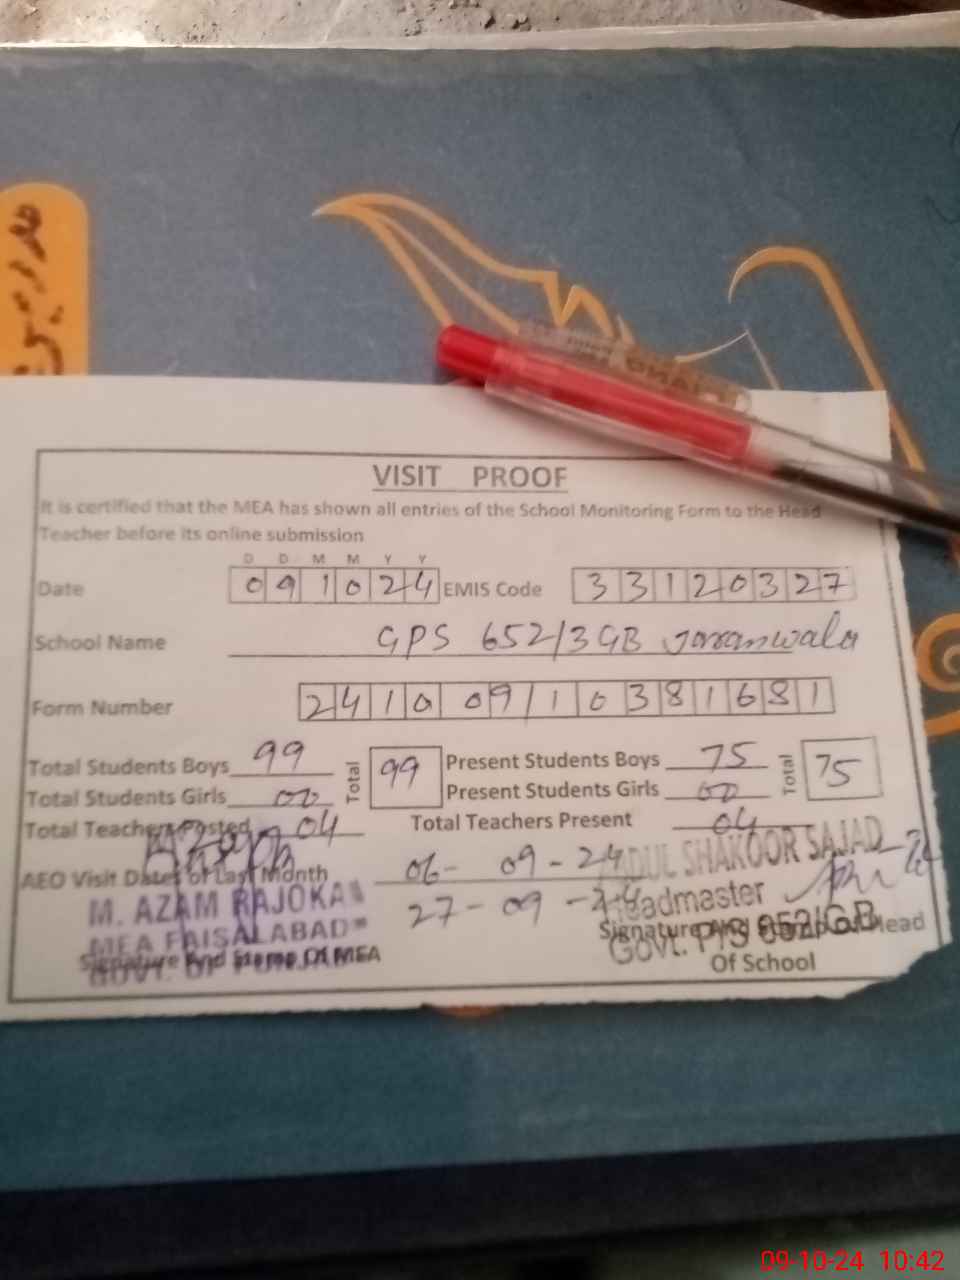 VISIT PROOF
It is certified that the MEA has shown all entries of the School Monitoring Form to the Head
Teacher before its online submission
D D M M Y Y
Date 091024 EMIS Code 33120327
School Name GPS 652/3 GB Jaranwala
Form Number 241009/10381681
Total Students Boys 99 Total 99 Present Students Boys 75 Total 75
Total Students Girls 00 Present Students Girls 00
Total Teachers Posted 04 Total Teachers Present 04
AEO Visit Dates of Last Month 06- 09-24
27-09-24
M. AZAM RAJOKA
MEA FAISALABAD
GOVT. OF PUNJAB
Signature And Stamp Of MEA
SHAKOOR SAJAD
Headmaster
Govt. P/S 652/GB
Signature And Stamp of Head
Of School
09-10-24 10:42